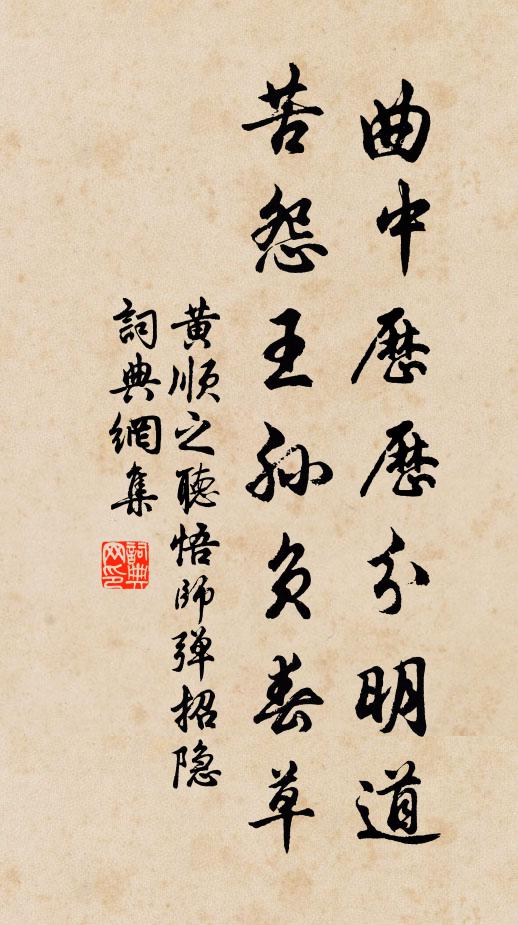 曲中歷歷分明道
苦怨王孙负春草
黄順之聽悟師弹招隐
詞典網集
詞典网印